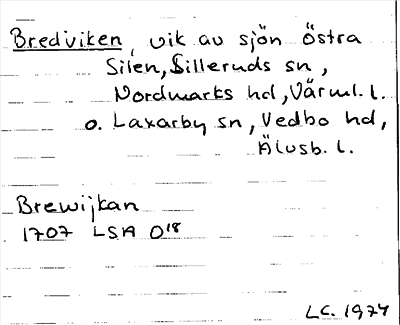 Bredviken, vik av sjön Östra
Silen, Silleruds sn,
Nordmarks hd, Värml. l.
o. Laxarby sn, Vedbo hd,
Älvsb. l.
Brewijkan
1707 LSA O18
LC. 1974